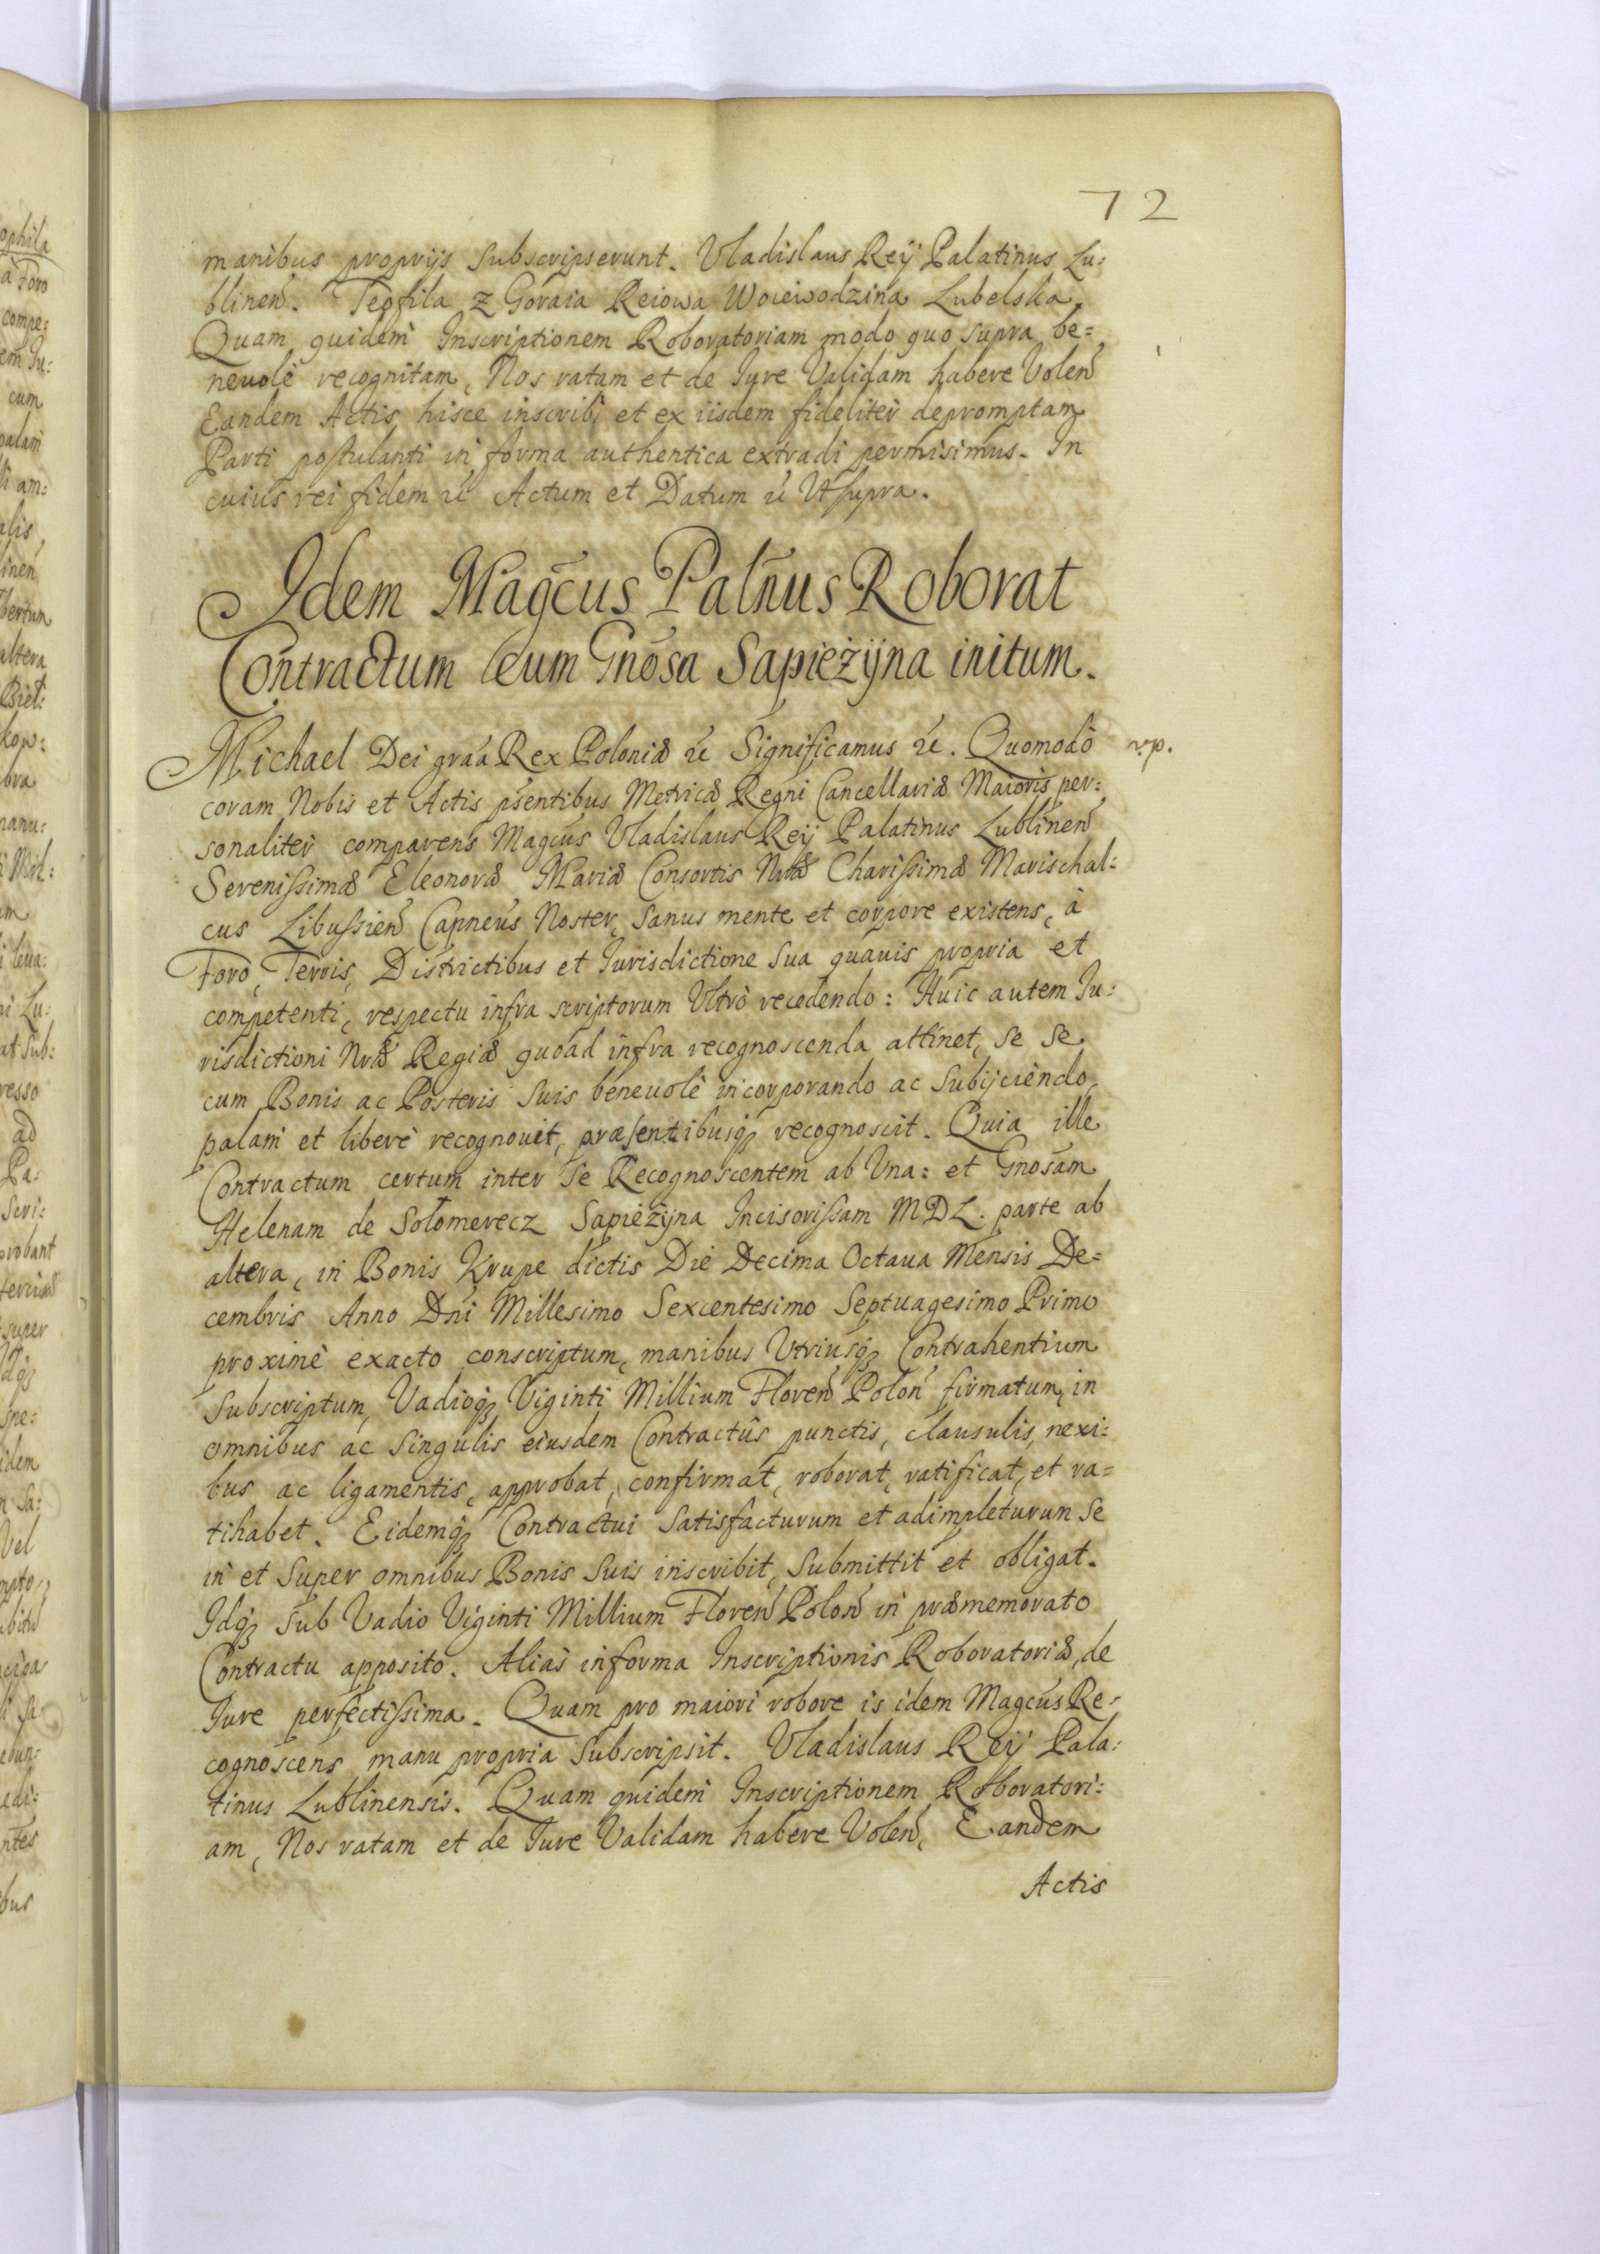 72
manibus proprijs subscripserunt. Vladislaus Reij Palatinus Lu:
blinen̄. Teofila z Goraia Reiowa Woiewodzina Lubelska.
Quam quidem Inscriptionem Roboratoriam modo quo supra be=
neuolè recognitam, Nos ratam et de Iure Validam habere Volen̄
Eandem Actis hisce inscribi et ex iisdem fideliter depromptam
Parti postulanti in forma authentica extradi permisimus. In
cuius rei fidem &c Actum et Datum &c Vt supra.
Idem Magc̄us Palñus Roborat
Contractum cum Gnōsa Sapieżyna initum.
Michael Dei grāa Rex Poloniæ &c Significamus &c. Quomodò
coram Nobis et Actis pn̄sentibus Metricæ Regni Cancellariæ Maioris per:
sonaliter comparens Magcūs Vladislaus Reij Palatinus Lublinen̄
Serenissimæ Eleonoræ Mariæ Consortis Nrāæ Charissimæ Marischal:
cus Libussien̄ Capneūs Noster, sanus mente et corpore existens, à
Foro, Terris, Districtibus et Iurisdictione sua quauis propria et
competenti, respectu infra scriptorum Vltrò recedendo: Huic autem Iu:
risdictioni Nrāæ Regiæ quoad infra recognoscenda attinet, se se
cum Bonis ac Posteris suis beneuolè incorporando ac subijciendo,
palam et liberè recognouit, præsentibusq; recognoscit. Quia ille
Contractum certum inter se Recognoscentem ab Vna: et Gnosām
Helenam de Sołomerecz Sapieżyna Incisorissam MDL. parte ab
altera, in Bonis Krupe dictis Die Decima Octaua Mensis De=
cembris Anno Dn̄i Millesimo Sexcentesimo Septuagesimo Primo
proximè exacto conscriptum, manibus Vtriusq; Contrahentium
subscriptum, Vadioq; Viginti Millium Floren̄ Polon̄ firmatum, in
omnibus ac singulis eiusdem Contractûs punctis, clausulis, nexi:
bus ac ligamentis, approbat, confirmat, roborat, ratificat, et ra=
tihabet. Eidemq; Contractui satisfacturum et adimpleturum se
in et super omnibus Bonis suis inscribit, submittit et obligat.
Idq; sub Vadio Viginti Millium Floren̄ Polon̄ in præmemorato
Contractu apposito. Alias in forma Inscriptionis Roboratoriæ, de
Iure perfectissima. Quam pro maiori robore is idem Magcūs Re:
cognoscens manu propria subscripsit. Vladislaus Reij Pala:
tinus Lublinensis. Quam quidem Inscriptionem Roboratori:
am, Nos ratam et de Iure Validam habere Volen̄, Eandem
Actis